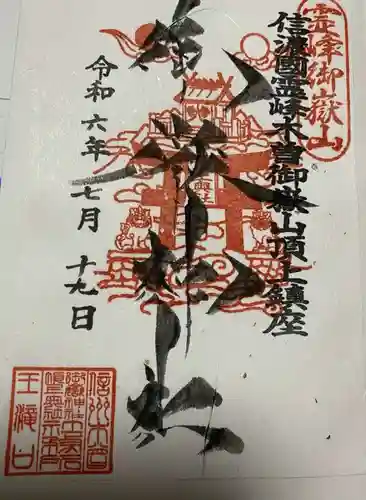 霊峰御嶽山
信濃國霊峰木曽御嶽山頂上鎮座
御嶽神社
令和六年七月十九日
信州木曽
王滝口